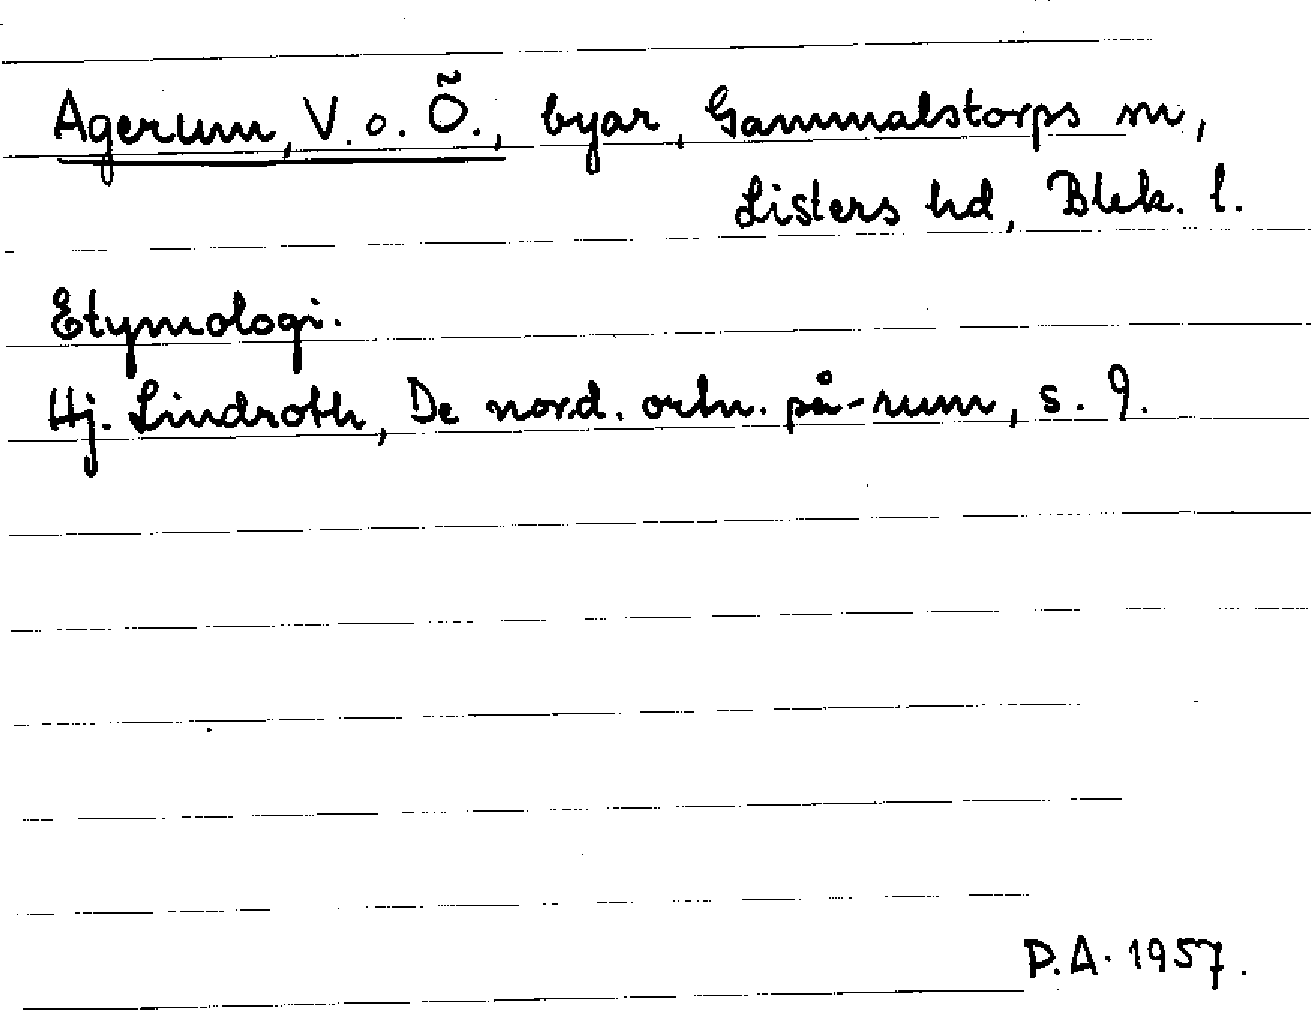 Agerum, V. o. Ö., byar, Gammalstorps sn,
Listers hd, Blek. l.
Etymologi.
Hj. Lindroth, De nord. ortn. på -rum, s. 9.
P.A. 1957.